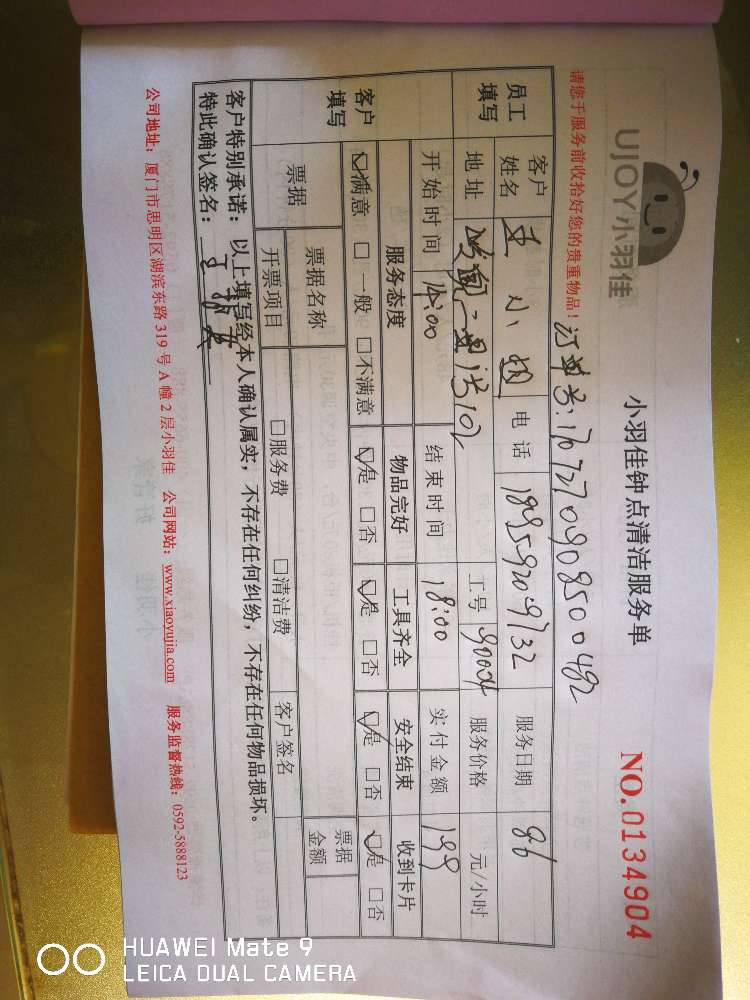 UJOY小羽佳
小羽佳钟点清洁服务单
NO.0134904
请您于服务前收拾好您的贵重物品！
订单号:
员工填写
客户姓名
小姐
电话
服务日期
地址
工号
服务价格
元/小时
开始时间
14:00
结束时间
18:00
实付金额
199
客户填写
服务态度
物品完好
工具齐全
安全结束
收到卡片
☑满意 □一般 □不满意
☑是 □否
☑是 □否
☑是 □否
☑是 □否
票据
票据名称
票据金额
开票项目
□服务费 □清洁费
客户签名
客户特别承诺：以上填写经本人确认属实，不存在任何纠纷，不存在任何物品损坏。
特此确认签名：
公司地址：厦门市思明区湖滨东路 319 号 A 幢 2 层小羽佳 公司网站：www.xiaoyujia.com 服务监督热线：0592-5888123
HUAWEI Mate 9
LEICA DUAL CAMERA